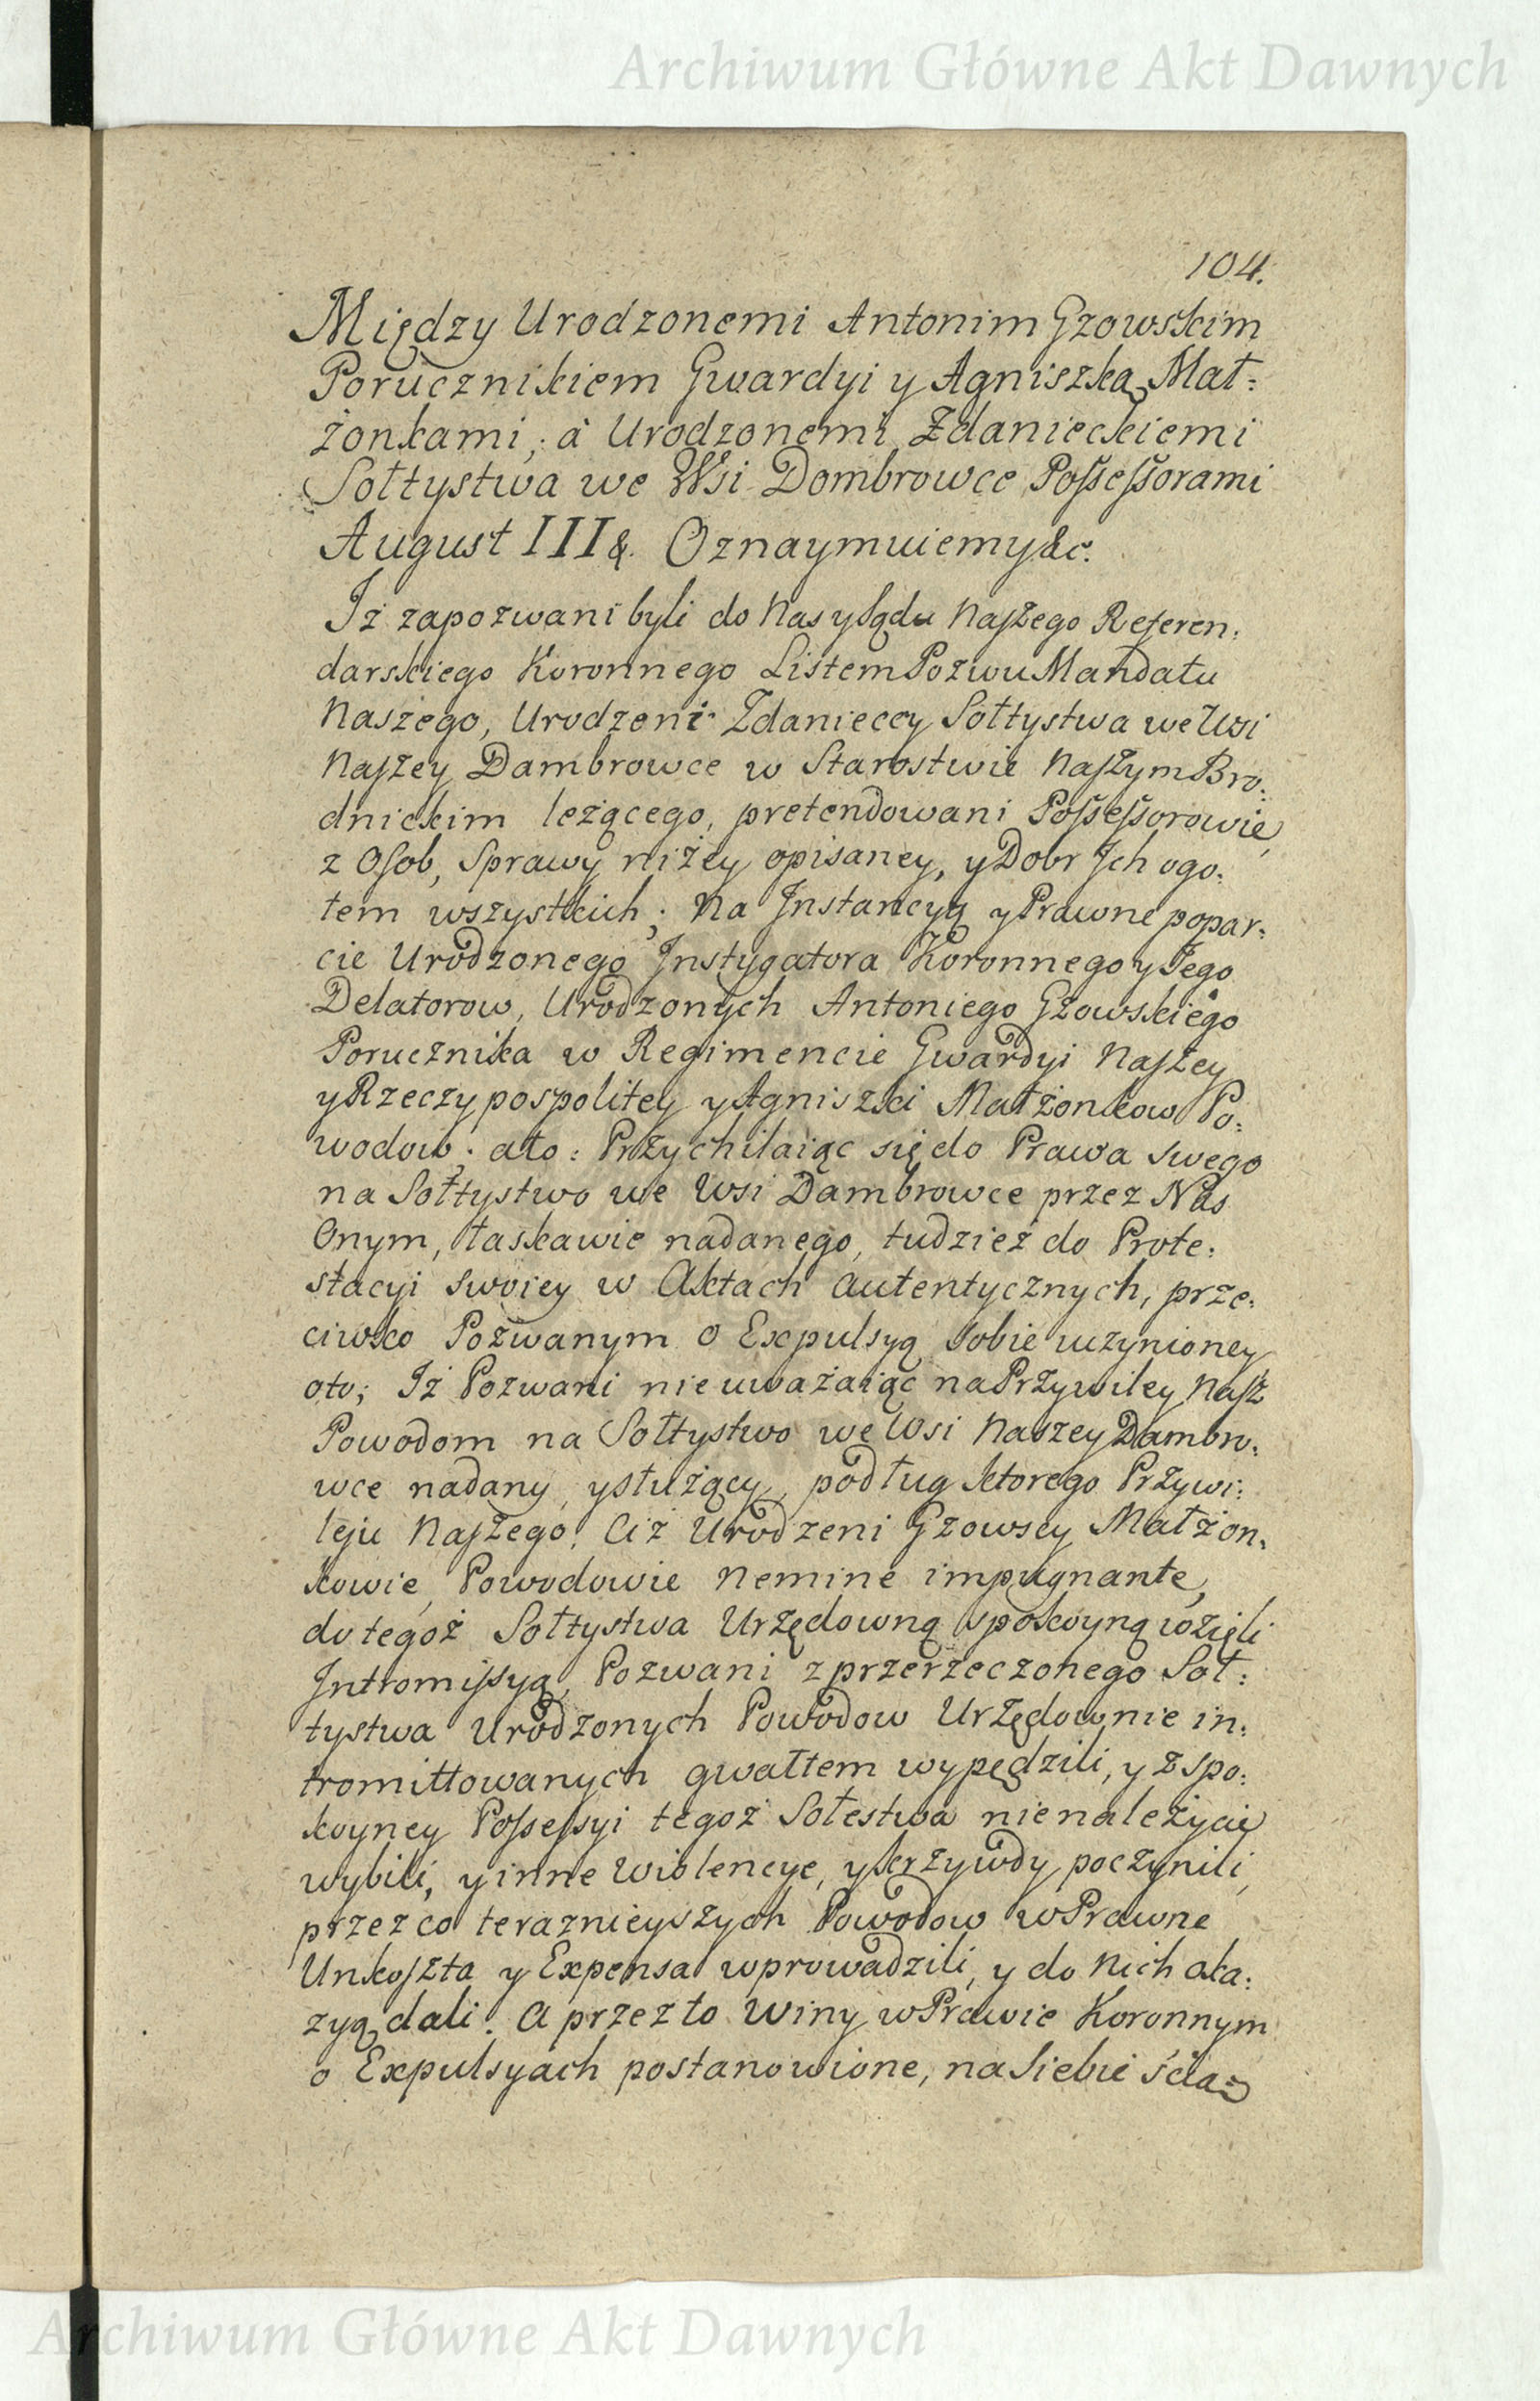 Archiwum Główne Akt Dawnych
104.
Między Urodzonemi Antonim Gzowskim
Porucznikiem Gwardyi y Agniszką Mał:
żonkami, à Urodzonemi Zdanieckiemi
Sołtystwa we Wsi Dombrowce Possessorami
August III &. Oznaymuiemy &c.
Iż zapozwani byli do Nas y Sądu Naszego Referen:
darskiego Koronnego Listem Pozwu Mandatu
Naszego, Urodzeni Zdanieccy Sołtystwa we Wsi
Naszey Dambrowce w Starostwie Naszym Bro:
dnickim leżącego, pretendowani Possessorowie,
z Osob, Sprawy niżey opisaney, y Dobr Ich ogo:
łem wszystkich; Na Instancyą y Prawne popar:
cie Urodzonego Instygatora Koronnego y Jego
Delatorow, Urodzonych Antoniego Gzowskiego
Porucznika w Regimencie Gwardyi Naszey
y Rzeczypospolitey y Agniszki Małżonkow Po:
wodow; ato: Przychilaiąc się do Prawa swego
na Sołtystwo we Wsi Dambrowce przez Nas
Onym, łaskawie nadanego, tudzież do Prote:
stacyi swoiey w Aktach autentycznych, prze:
ciwko Pozwanym o Expulsyą sobie uczynioney
oto; Iż Pozwani nie uważaiąc na Przywiley Nasz
Powodom na Sołtystwo we Wsi Naszey Dambro:
wce nadany, y służący, podług ktorego Przywi:
leju Naszego, Ciż Urodzeni Gzowscy Małżon:
kowie, Powodowie nemine impugnante,
do tegoż Sołtystwa Urzędowną spokoyną wzięli
Intromissyą, Pozwani z przerzeczonego Soł:
tystwa Urodzonych Powodow Urzędownie in:
tromittowanych gwałtem wypędzili, y z spo:
koyney Possessyi tegoż Sołestwa nienależycie
wybili, y inne Wiolencye, y krzywdy poczynili,
przez co teraznieyszych Powodow w Prawne
Unkoszta y Expensa wprowadzili, y do Nich oka:
zyą dali. A przez to Winy w Prawie Koronnym
o Expulsyach postanowione, na Siebie ścią:
Archiwum Główne Akt Dawnych